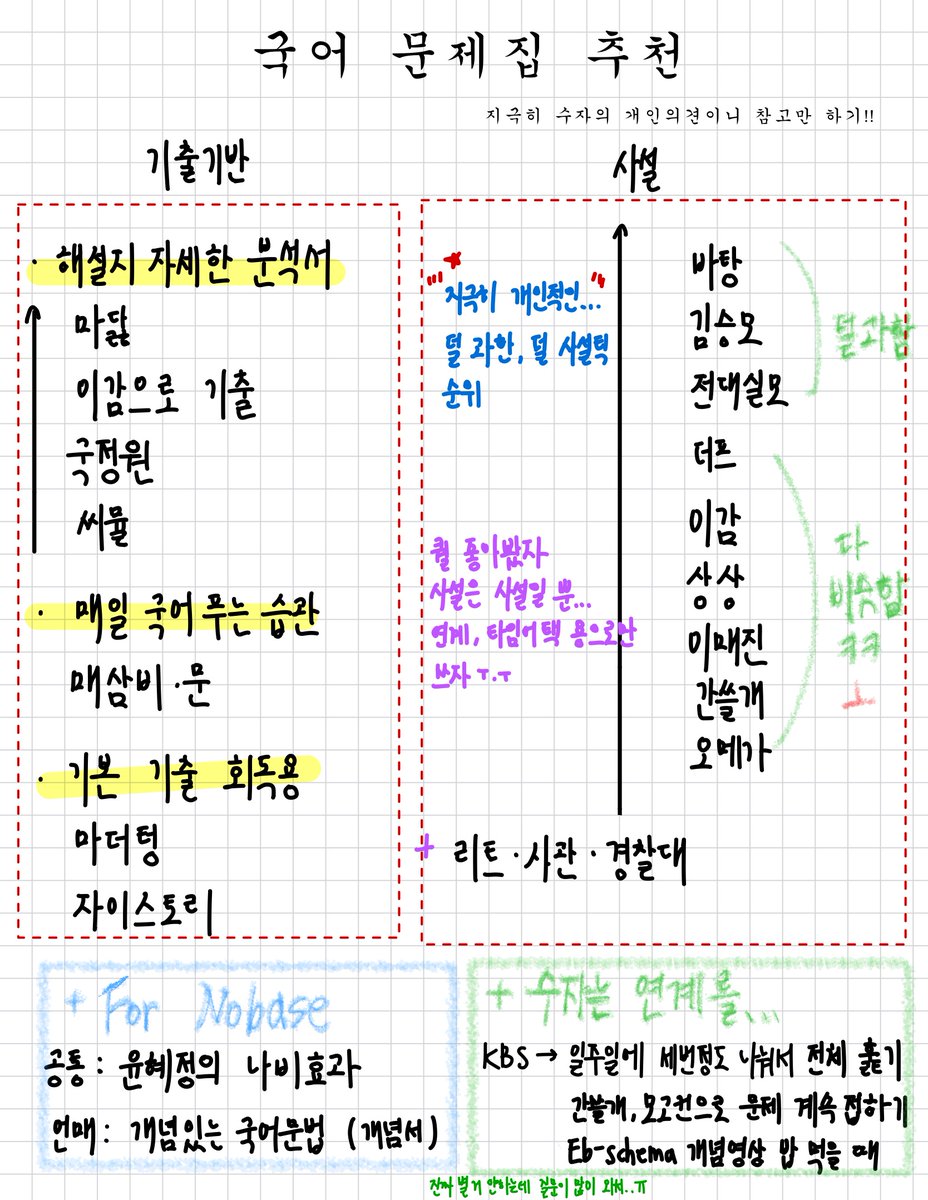 국어 문제집 추천
지극히 수자의 개인의견이니 참고만 하기!!
기출기반
· 해설지 자세한 분석서
마닳
이감으로 기출
국정원
씨뮬
· 매일 국어 푸는 습관
매삼비·문
· 기본 기출 회독용
마더텅
자이스토리
사설
"지극히 개인적인..."
덜 과한, 덜 사설틱
순위
바탕
김승모
전대실모
덜과함
더프
이감
상상
이매진
간쓸개
오메가
다
비슷함
ㅋㅋ
ㅗ
퀄 좋아봤자
사설은 사설일 뿐...
연계, 타임어택 용으로만
쓰자 ㅜ.ㅜ
+ 리트·사관·경찰대
+ For Nobase
공통: 윤혜정의 나비효과
언매: 개념있는 국어문법 (개념서)
+ 수자는 연계를...
KBS → 일주일에 세번정도 나눠서 전체 훑기
간쓸개, 모고컨으로 문제 계속 접하기
Eb-schema 개념영상 밥 먹을 때
진짜 별거 안하는데 질문이 많이 와서..ㅠ